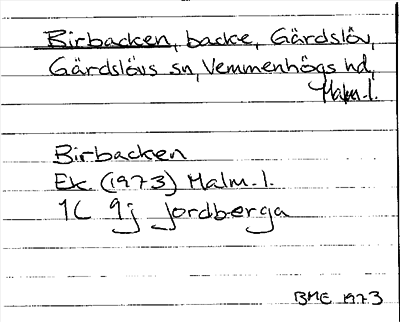 Birbacken, backe, Gärdslöv,
Gärdslövs sn, Vemmenhögs hd,
Malm. l.
Birbacken
Ek (1973) Malm. l.
1C 9j Jordberga
BME 1973